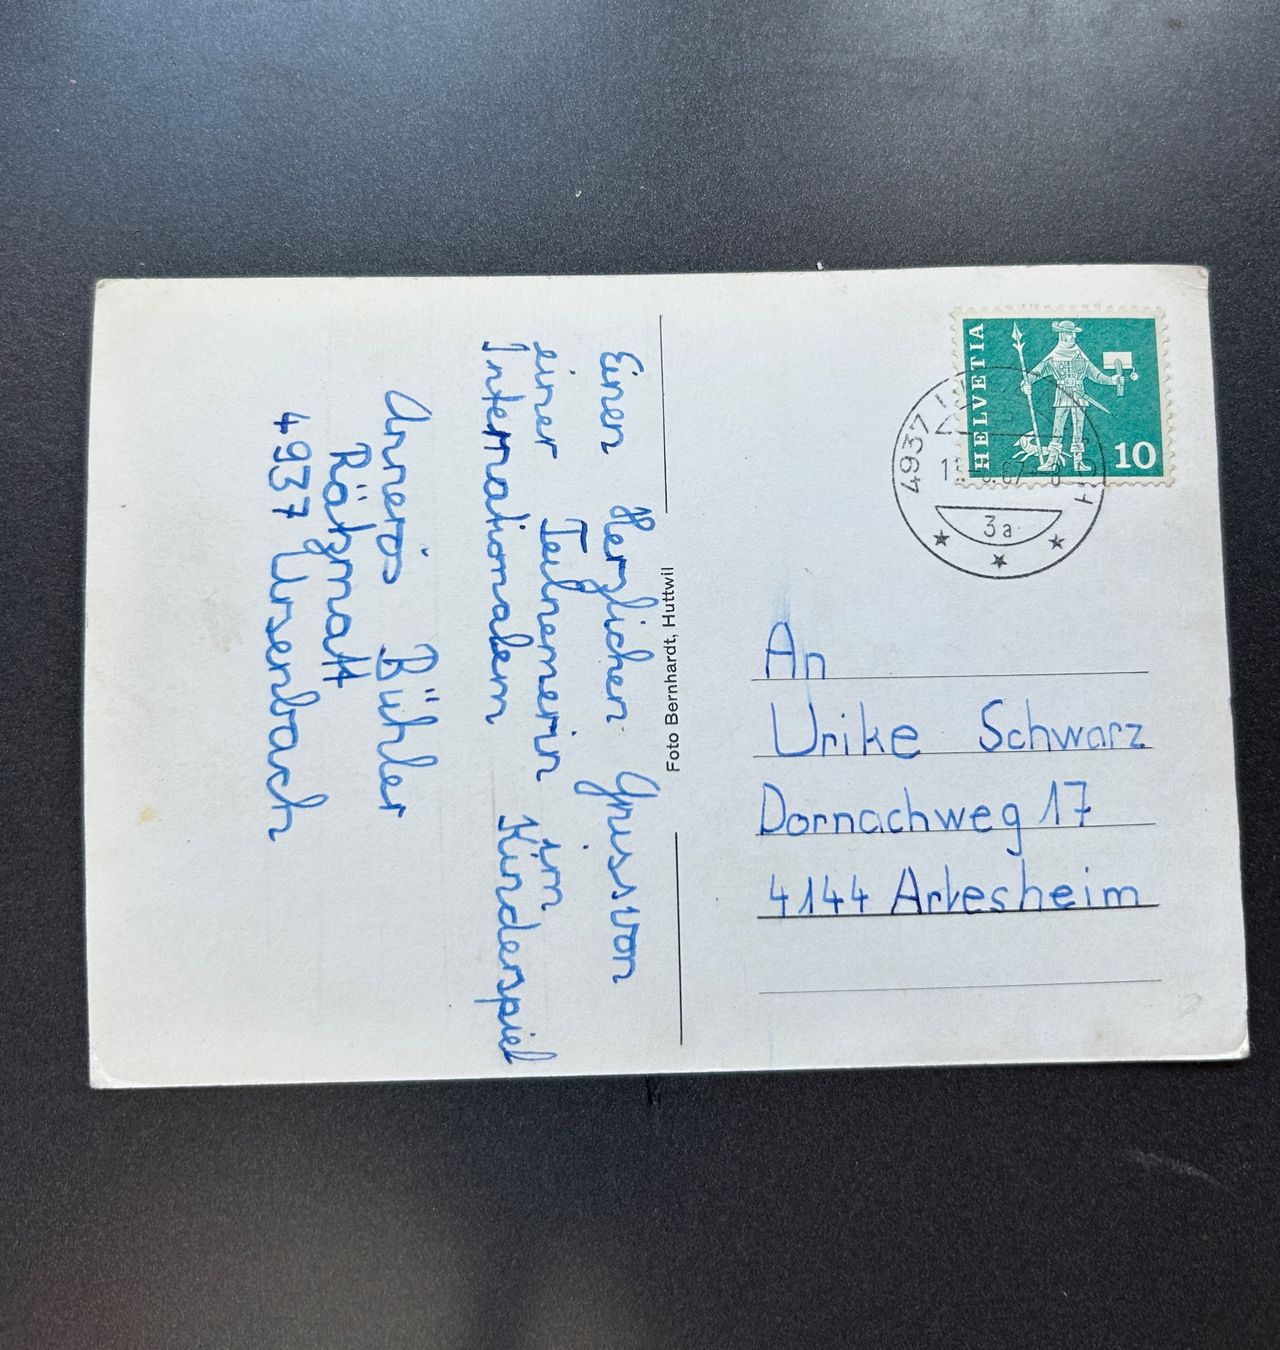 Einen Herzlichen Gruss von
einer Teilnemerin im
Internationalem Kinderspiel
Annerös Bühler
Rötzmatt
4937 Ursenbach
Foto Bernhardt, Huttwil
HELVETIA
10
4937
3a
An
Urike Schwarz
Dornachweg 17
4144 Arlesheim